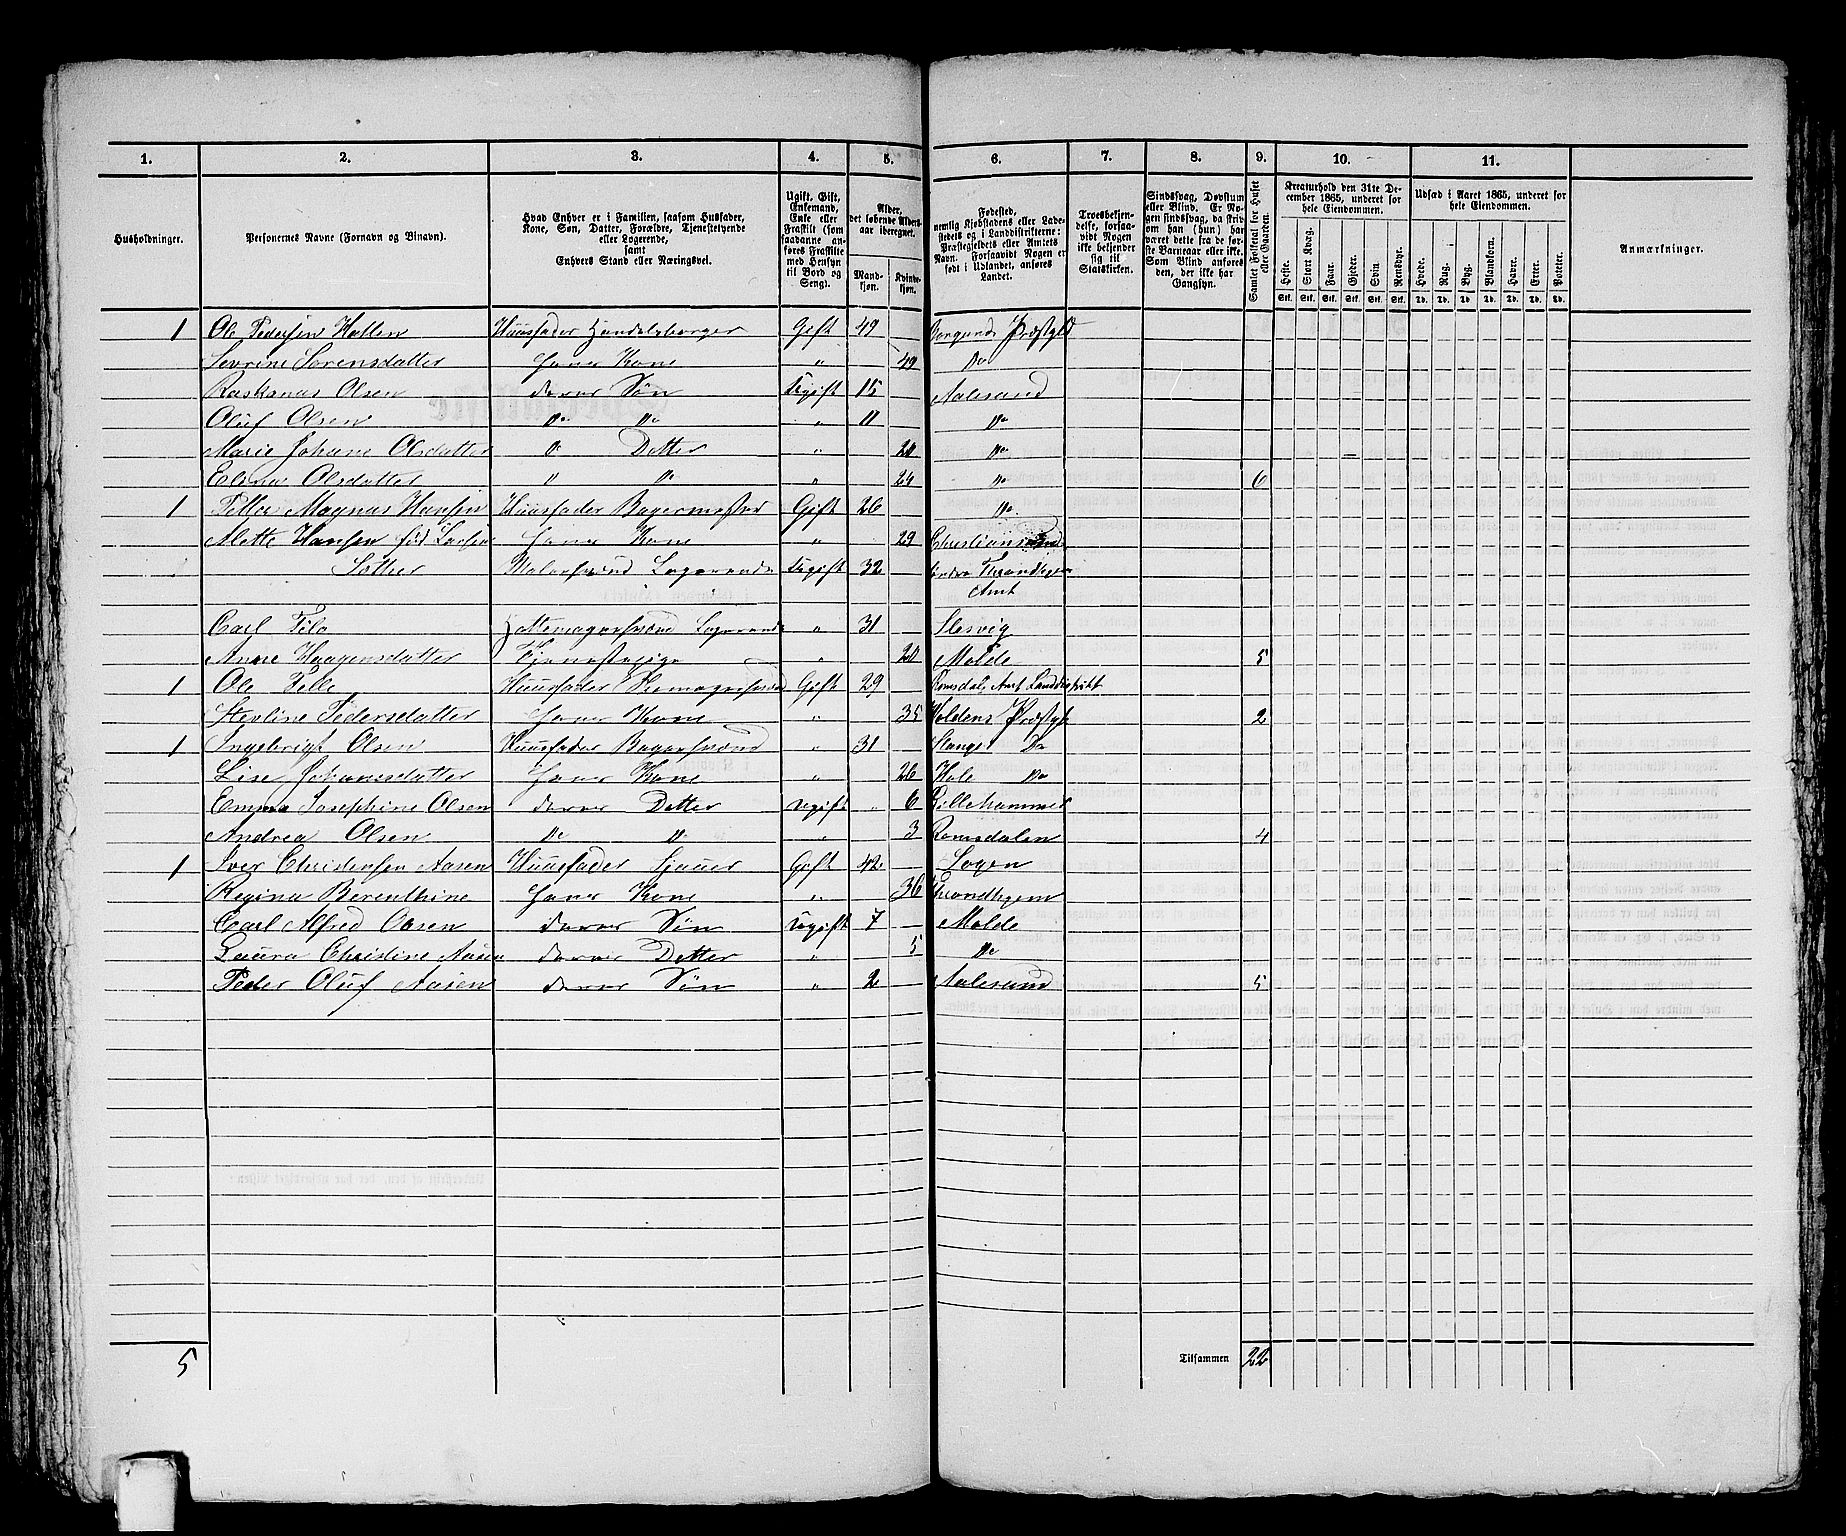 1. 2. 3. 4. 5. 6. 7. 8. 9. 10. 11.
Husholdninger.
Personernes Navne (Fornavn og Binavn).
Hvad Enhver er i Familien, saasom Husfader,
Kone, Søn, Datter, Forældre, Tjenestetyende
eller Logerende,
samt
Enhvers Stand eller Næringsvei.
Ugift, Gift,
Enkemand,
Enke eller
Fraskilt (som
saadanne an-
føres Fraskilte
med Hensyn
til Bord og
Seng).
Alder,
det løbende Alders-
aar iberegnet.
Mand-
kjøn.
Kvinde-
kjøn.
Fødested,
nemlig Kjøbstadens eller Lade-
stedets og i Landdistrikterne:
Præstegjeldets eller Amtets
Navn. Forsaavidt Nogen er
født i Udlandet, anføres
Landet.
Troesbekjen-
delse, forsaa-
vidt Nogen
ikke bekjender
sig til
Statskirken.
Sindssvag, Døvstum
eller Blind. Er No-
gen sindssvag, da skriv
om han (hun) har
været dette fra de før-
ste Barneaar eller ikke.
Som Blind anføres
den, der ikke har
Gangsyn.
Samlet Folketal for Huset
eller Gaarden.
Kreaturhold den 31te De-
cember 1865, underet for
hele Eiendommen.
Heste. Stort Kvæg. Faar. Gjeder. Svin Rensdyr.
Stk. Stk. Stk. Stk. Stk. Stk.
Udsæd i Aaret 1865, underet for
hele Eiendommen.
Hvede. Rug. Byg. Blandkorn. Havre. Erter. Poteter.
Td. Td. Td. Td. Td. Td. Td.
Anmærkninger.
1 Ole Pedersen Hollen Huusfader Handelsborger Gift 49 Borgunds Præstgld
Sevrine Sorensdatter Hans Kone " 49 Do
Rasmus Olsen deres Søn Ugift 15 Aalesund
Oluf Olsen Do Do " 11 Do
Marie Johane Olsdatter D Datter " 20 Do
Elena Olsdatter " Do " 24 Do 6
1 Peter Magnus Hansen Huusfader Bagermester Gift 26 Do
Mette Hansen föd Larsen Hans Kone " 29 Christiansund
Sother Malersvend Logerende Ugift 32 Söndre Throndhjem
Amt
Carl Filo Hattemagersvend Logerende " 31 Slesvig
Anne Haagensdatter Tjenestepige " 20 Molde 5
1 Ole Pelle Huusfader Skomagersvend Gift 29 Romsdals Amt Landdistrikt
Stevline Pedersdatter Hans Kone " 35 Voldens Præstgl 2
1 Ingebrigt Olsen Huusfader Bagersvend " 31 Stange Do
Lise Johansdatter Hans Kone " 26 Hole Do
Emma Josephine Olsen deres Datter Ugift " 6 Lillehammer
Andrea Olsen Do Do " 3 Romsdalen 4
1 Iver Christensen Aasen Huusfader Sjauer Gift 42 Sogen
Regina Berenthine Hans Kone " 36 Throndhjem
Carl Alfred Olsen deres Søn Ugift 7 Molde
Laura Christine Aasen deres Datter " 5 Do
Peder Oluf Aasen deres Søn " 2 Aalesund 5
5 Tilsammen 22